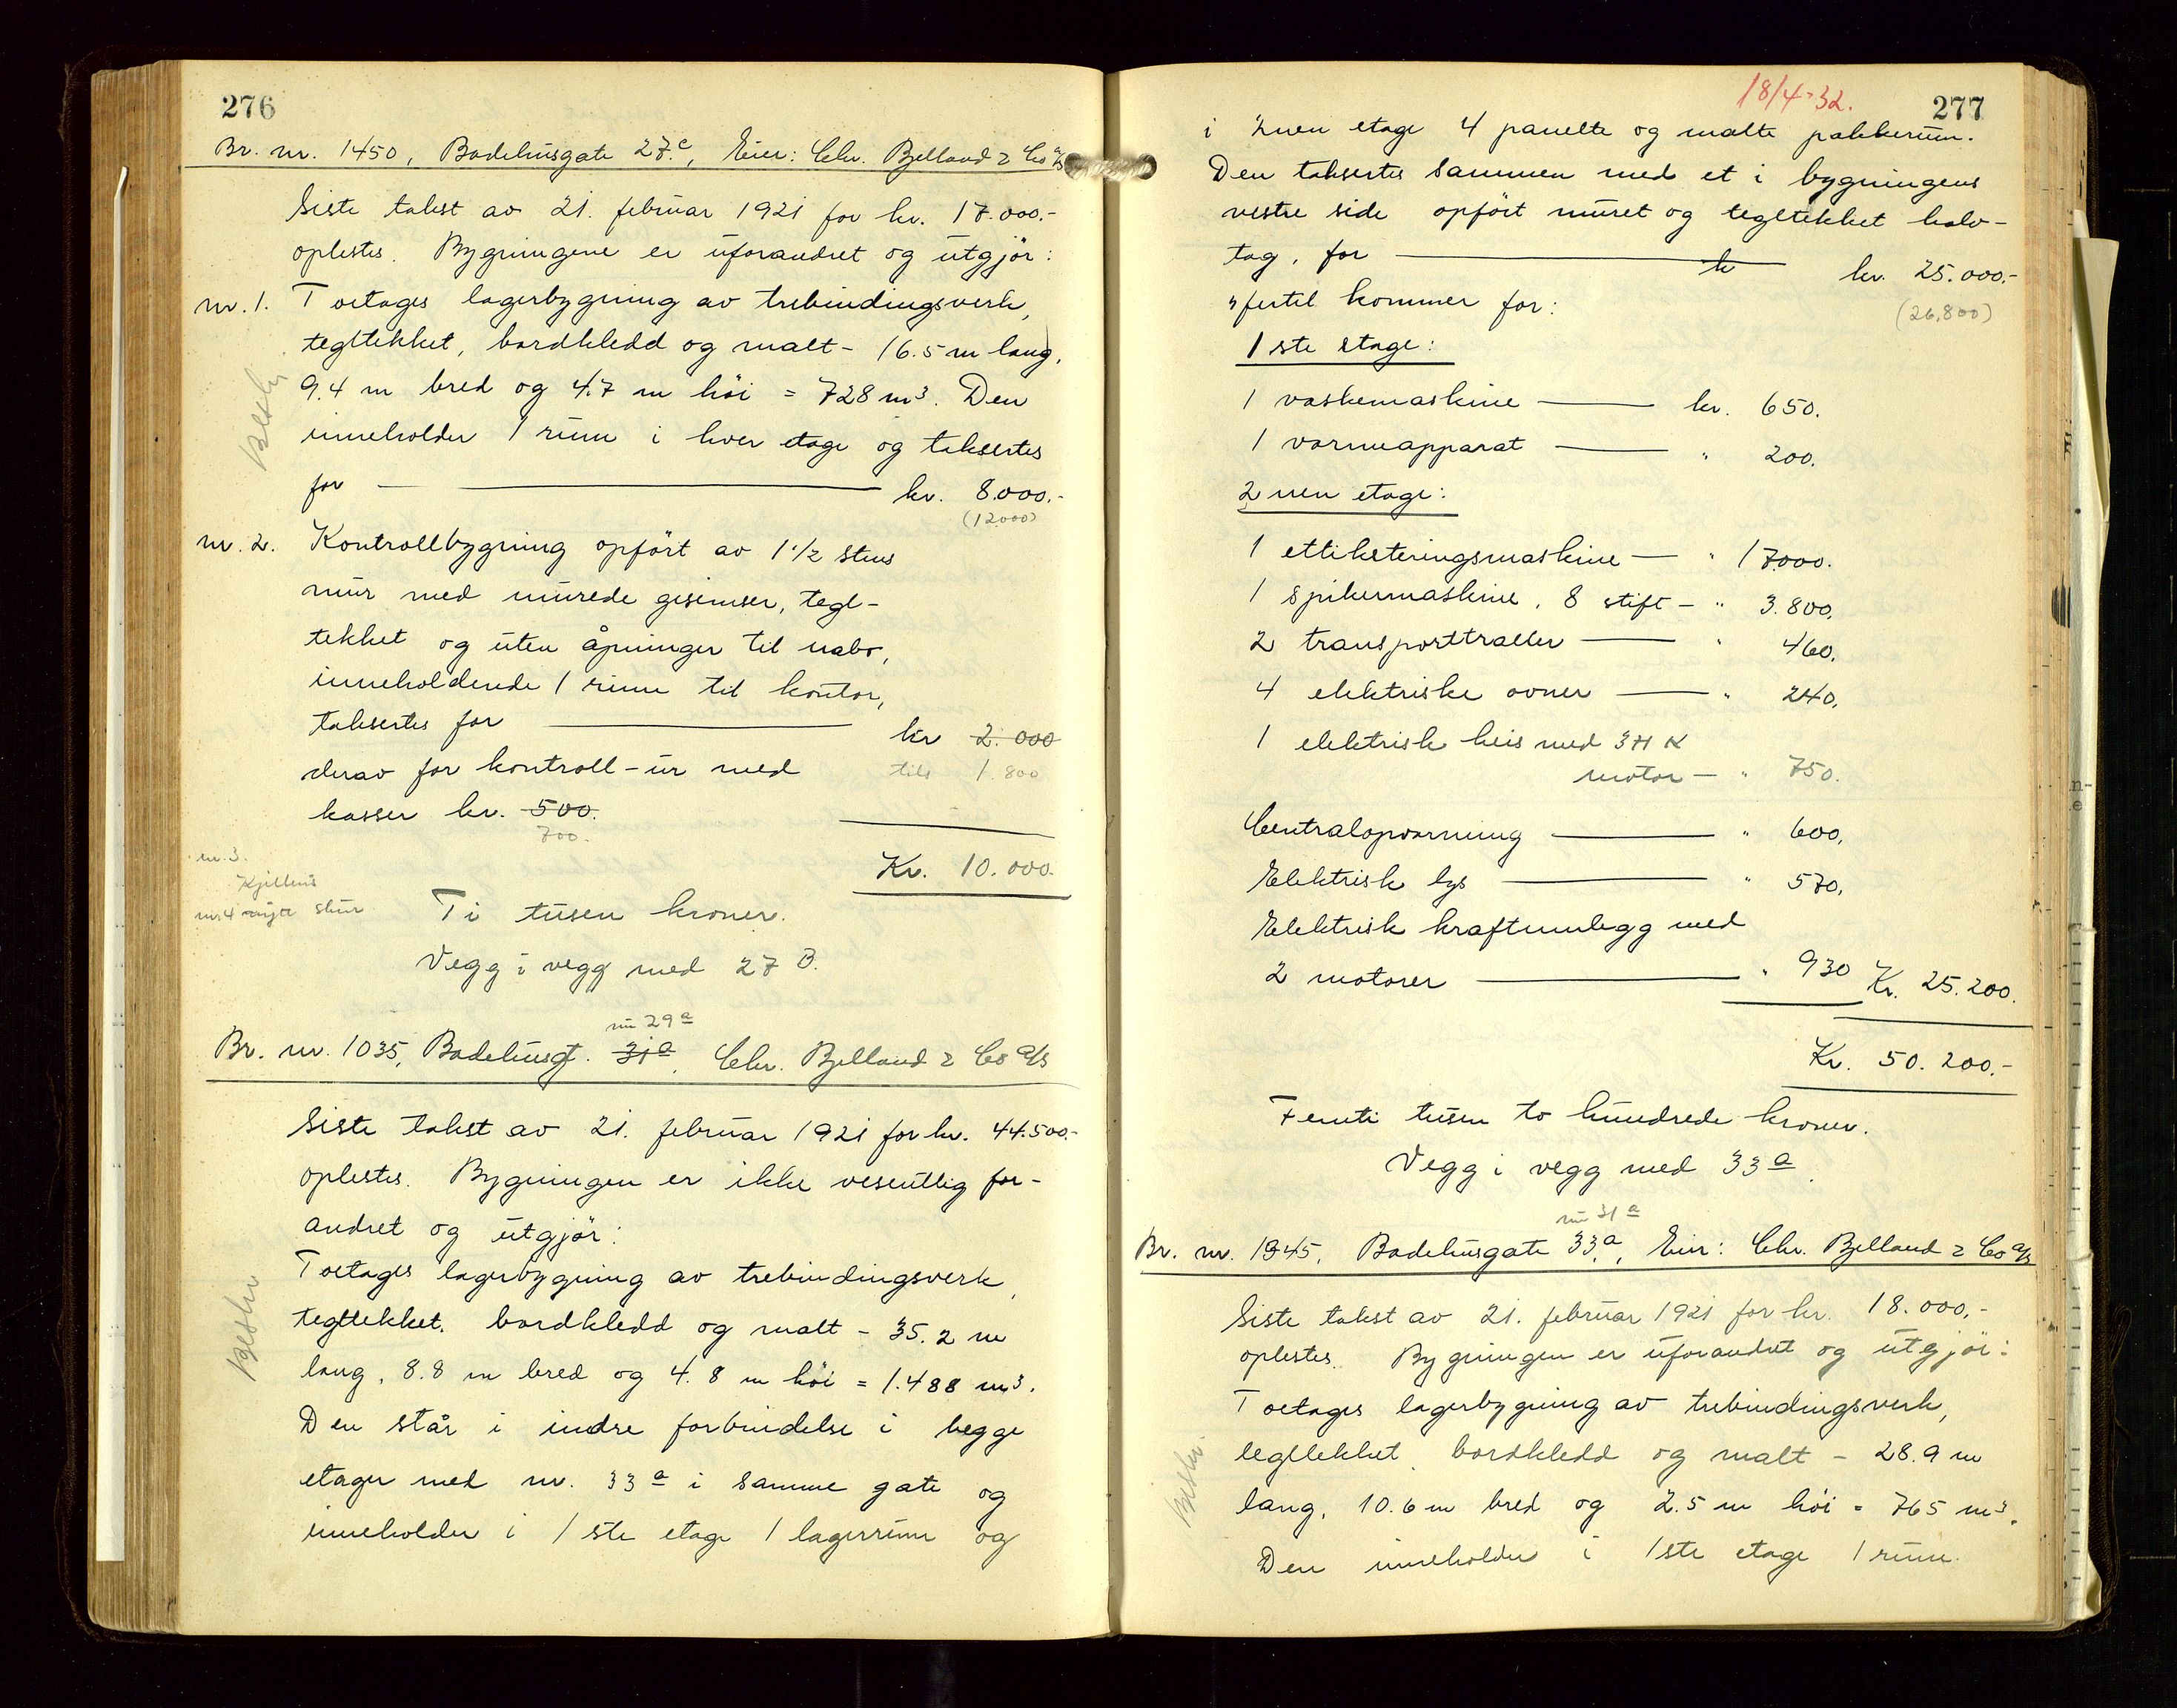 276
Br. nr. 1450, Badehusgate 27c, Eier: Chr. Bjelland & Co a/s
Siste takst av 21. februar 1921 for kr. 17.000.-
oplestes. Bygningene er uforandret og utgjør:
nr. 1. Toetages lagerbygning av trebindingsverk,
tegltekket, bordkledd og malt - 16.5 m lang,
9.4 m bred og 4.7 m höi = 728 m3. Den
inneholder 1 rum i hver etage og taksertes
for kr. 8.000.-
(12.000)
Besktr
nr. 2. Kontrollbygning opført av 1 1/2 stens
mur med murede gesimser, tegl-
tekket og uten åpninger til nabo,
inneholdende 1 rum til kontor,
taksertes for kr 2.000
derav for kontroll-ur med till 1.800
kasser kr. 500.
700.
Kr. 10.000.
nr. 3.
Kjelhus
nr 4 nyte skur
Ti tusen kroner.
Vegg i vegg med 27 B.
nu 29a
Br. nr. 1035, Badehusgt. 31a, Chr. Bjelland & Co a/s
Siste takst av 21. februar 1921 for kr. 44.500.-
oplestes. Bygningen er ikke vesentlig for-
andret og utgjør:
Toetages lagerbygning av trebindingsverk,
tegltekket, bordkledd og malt - 35.2 m
lang, 8.8 m bred og 4.8 m höi = 1.488 m3.
Den står i indre forbindelse i begge
etager med nr. 33a i samme gate og
inneholder i 1ste etage 1 lagerrum og
18/4-32.
277
i 2nen etage 4 panelte og malte pakkerum.
Den taksertes sammen med et i bygningens
vestre side opført muret og tegltekket halv-
tag, for kr. 25.000.-
(26,800)
Hertil kommer for:
1ste etage:
1 vaskemaskine kr. 650.
1 varmeapparat " 200.
2nen etage:
1 ettiketeringsmaskine " 17000.
1 spikermaskine, 8 stift - " 3.800.
2 transporttraller " 460.
4 elektriske ovner " 240.
1 elektrisk heis med 3 HK
motor - " 750.
Centralopvarmning " 600.
Elektrisk lys " 570.
Elektrisk kraftannlegg med
2 motorer " 930 Kr. 25.200.
Kr. 50.200.-
Femti tusen to hundrede kroner.
Vegg i vegg med 33a.
nu 31a
Br. nr. 1945, Badehusgate 33a, Eier: Chr. Bjelland & Co a/s
Siste takst av 21. februar 1921 for kr. 18.000.-
oplestes. Bygningen er uforandret og utgjør:
Toetages lagerbygning av trebindingsverk,
tegltekket, bordkledd og malt - 28.9 m
lang, 10.6 m bred og 2.5 m höi = 765 m3.
Den inneholder i 1ste etage 1 rum.